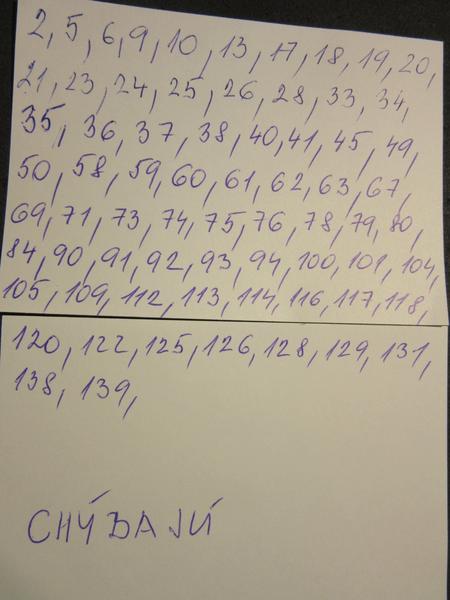 2, 5, 6, 9, 10, 13, 17, 18, 19, 20,
21, 23, 24, 25, 26, 28, 33, 34,
35, 36, 37, 38, 40, 41, 45, 49,
50, 58, 59, 60, 61, 62, 63, 67,
69, 71, 73, 74, 75, 76, 78, 79, 80,
84, 90, 91, 92, 93, 94, 100, 101, 104,
105, 109, 112, 113, 114, 116, 117, 118,
120, 122, 125, 126, 128, 129, 131,
138, 139,
CHÝBAJÚ